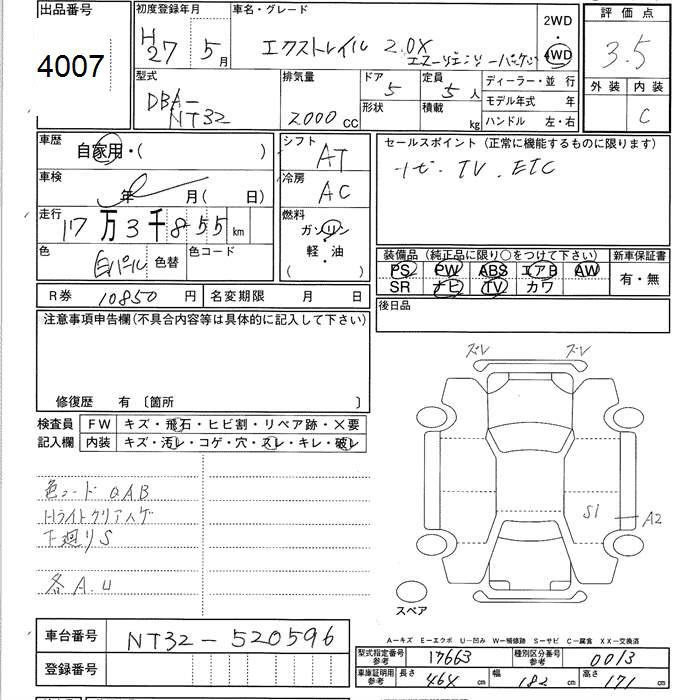 出品番号 初度登録年月 車名・グレード 2WD 評価点
4007 H27 5月 エクストレイル 2.0X ・ 3.5
エマージェンシーパッケージ 4WD
型式 排気量 ドア 定員 ディーラー・並行 外装 内装
DBA- 5 5人 モデル年式 年 C
NT32 2000cc 形状 積載 kg ハンドル 左・右
車歴 自家用・( ) シフト AT セールスポイント(正常に機能するものに限ります)
ナビ. TV. ETC
車検 年 月( 日) 冷房 AC
走行 17万3千855km 燃料 ガソリン
色 白パール 色替 色コード 軽・油 装備品(純正品に限り○をつけて下さい) 新車保証書
( ) PS PW ABS エアB AW 有・無
SR ナビ TV カワ
R券 10850円 名変期限 月 日 後日品
注意事項申告欄(不具合内容等は具体的に記入して下さい)
修復歴 有 〔箇所 〕
ズレ ズレ
検査員 FW キズ・飛石・ヒビ割・リペア跡・×要
記入欄 内装 キズ・汚レ・コゲ・穴・スレ・キレ・破レ
色コードQAB
Hライトクリアハゲ
下廻りS
各A.U
S1 A2
スペア
A−キズ E−エクボ U−凹み W−補修跡 S−サビ C−腐食 XX−交換済
車台番号 NT32-520596
型式指定番号 参考 17663 種別区分番号 参考 0013
登録番号
車庫証明用 参考 長さ 464cm 幅 182cm 高さ 171cm